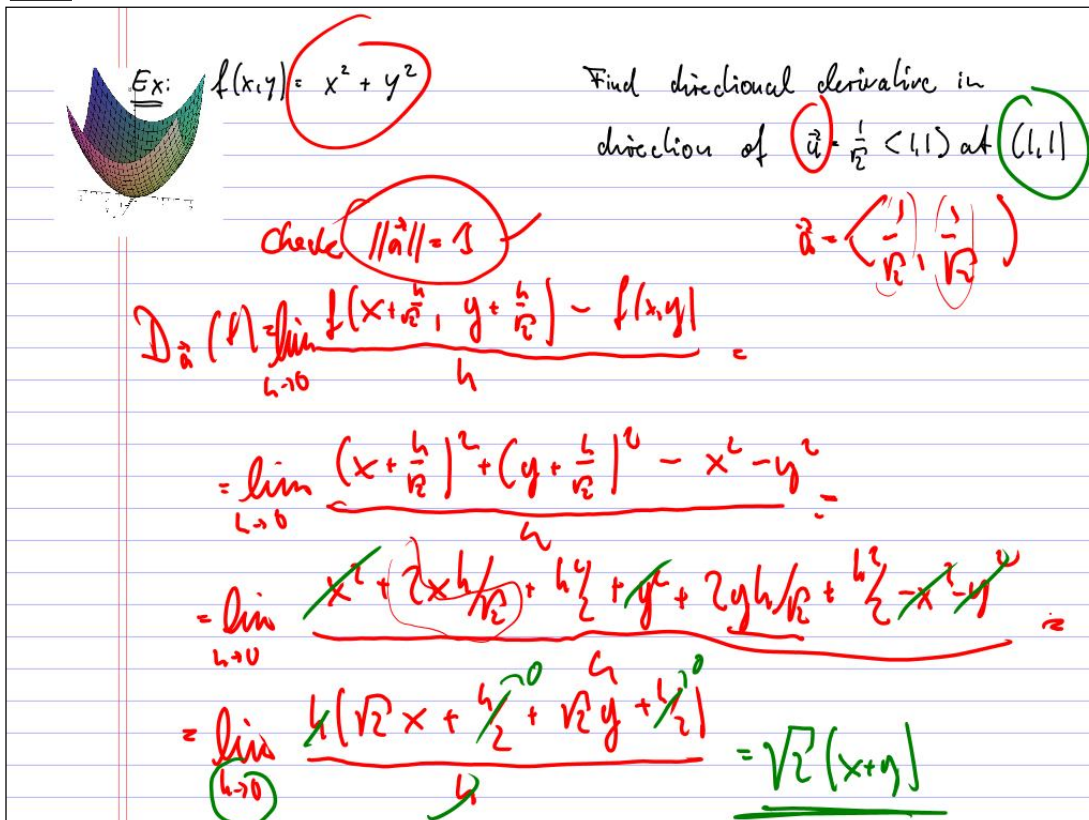 Ex: f(x,y) = x² + y² Find directional derivative in
direction of u⃗ = 1/√2 <1,1) at (1,1)
Check ||u⃗|| = 1 ✓ u⃗ = <1/√2, 1/√2)
D_u⃗ (f) = lim h→0 (f(x + h/√2, y + h/√2) - f(x,y)) / h =
= lim h→0 ((x + h/√2)² + (y + h/√2)² - x² - y²) / h =
= lim h→0 (x² + 2xh/√2 + h²/2 + y² + 2yh/√2 + h²/2 - x² - y²) / h =
= lim h→0 h(√2 x + h/2 →0 + √2 y + h/2 →0) / h = √2 (x+y)